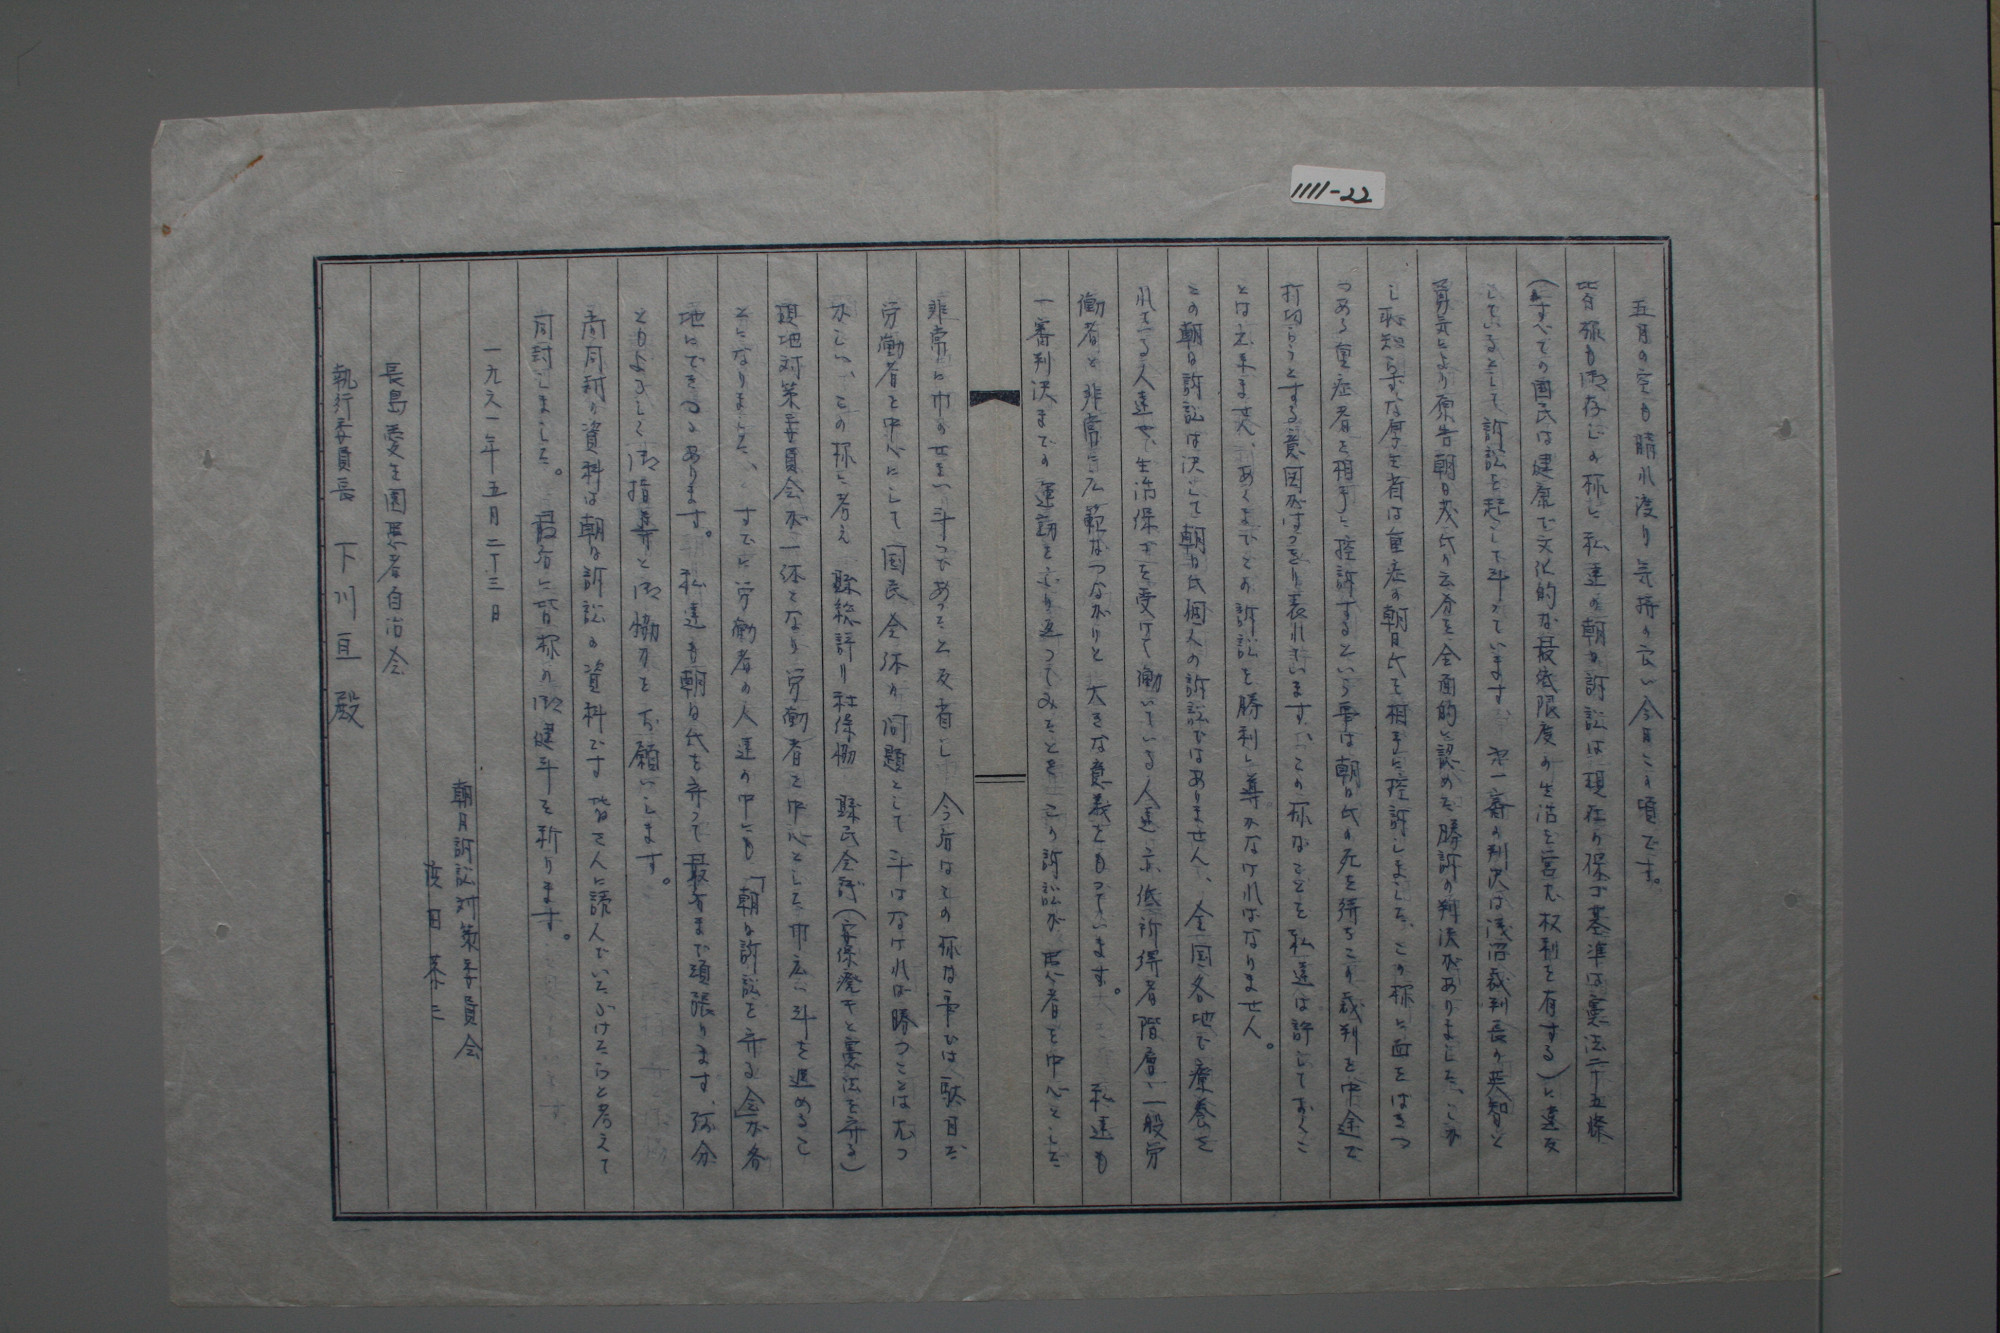 1111-22
五月の空も晴れ渡り気持の良い今日この頃です。
皆様も御存じの様に私達の朝日訴訟は現在の保ゴ基準は憲法二十五條
(すべての国民は健康で文化的な最低限度の生活を営む权利を有する)に違反
しているとして訴訟を起して斗っています、第一審の判決は浅沼裁判長の英智と
勇気により原告朝日茂氏の云分を全面的に認めた勝訴の判決がありました、しか
し恥知らずな厚生省は重症の朝日氏を相手に控訴しました、この様に血をはきつ
つある重症者を相手に控訴するという事は朝日氏の死を待ちこの裁判を中途で
打切ろうとする意図がはっきり表れています、この様なことを私達は許しておくこ
とは出来ません、あくまでこの訴訟を勝利に導かなければなりません。
この朝日訴訟は決して朝日氏個人の訴訟ではありません、全国各地で療養を
れている人達や、生活保ゴを受けて働いている人達、低所得者階層、一般労
働者と非常に広範なつながりと大きな意義をもっています。私達も
一審判決までの運動をふり返ってみたときこの訴訟が患者を中心とした
非常に巾のせまい斗いであったと反省し今后はこの様な事では駄目だ
労働者を中心にして国民全体の問題として斗はなければ勝つことはむつ
かしい、この様に考え縣総評、社保協縣民会議(安保廃キと憲法を守る)
現地対策委員会が一体となり労働者を中心とした巾広い斗を進めるこ
とになりました、すでに労働者の人達の中にも「朝日訴訟を守る会」が各
地にできつつあります。私達も朝日氏を守って最后まで頑張ります、何分
ともよろしく御指導と御協力をお願いします。
尚同封の資料は朝日訴訟の資料です皆さんに読んでいただけたらと考えて
同封しました。最后に皆様の御健斗を祈ります。
一九六一年五月二十三日
朝日訴訟対策委員会
長島愛生園患者自治会
執行委員長 下川亘殿